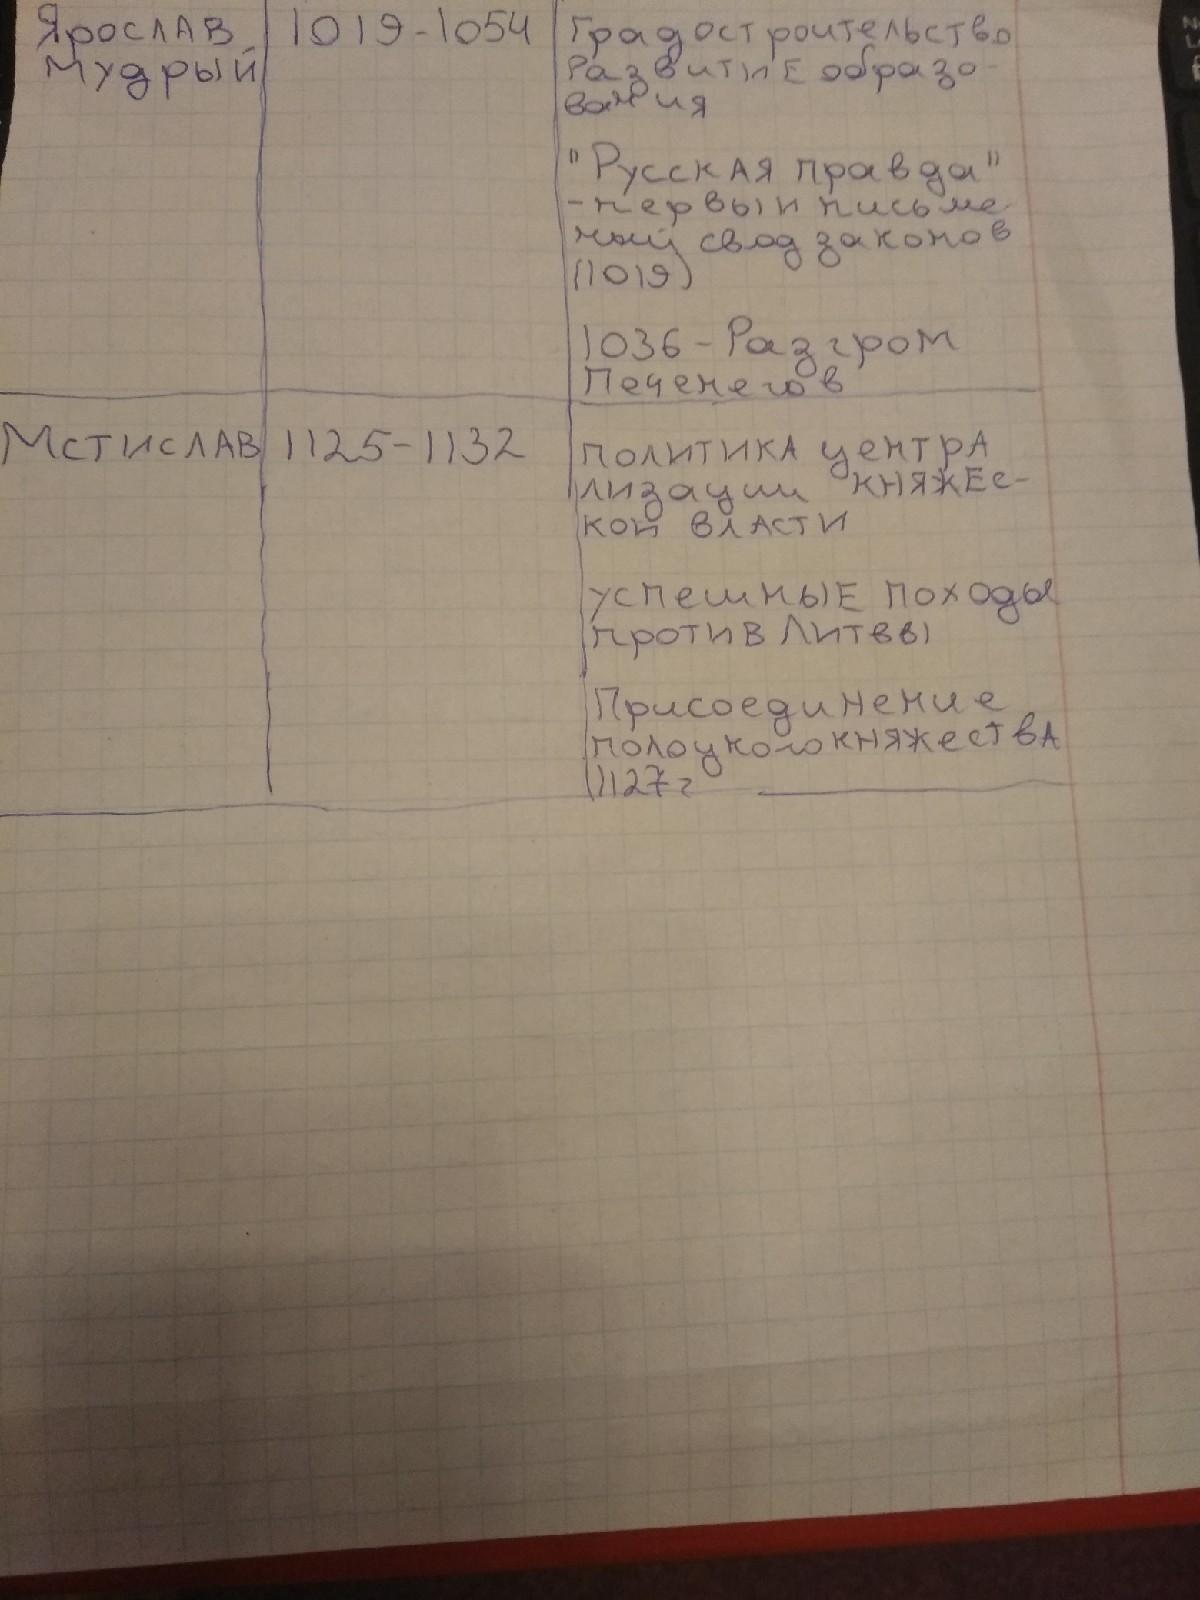 Ярослав 1019-1054 Градостроительство
Мудрый Развитие образо-
вания
"Русская правда"
-первый письме
ный свод законов
(1019)
1036-Разгром
Печенегов
Мстислав 1125-1132 политика центра
лизации княжес-
кой власти
успешные походы
против Литвы
Присоединение
полоцкого княжества
1127г